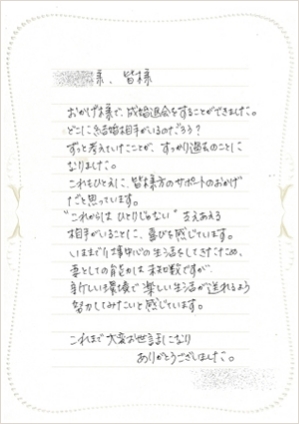 様、皆様
おかげ様で、成婚退会をすることができました。
どこに結婚相手がいるのだろう？
ずっと考えていたことが、すっかり過去のことに
なりました。
これもひとえに、皆様方のサポートのおかげ
だと思っています。
"これからは ひとりじゃない" 支えあえる
相手がいることに、喜びを感じています。
いままで仕事中心の生活をしてきたため、
妻としての能力は未知数ですが、
新しい環境で楽しい生活が送れるよう
努力してみたいと感じています。
これまで大変お世話になり
ありがとうございました。